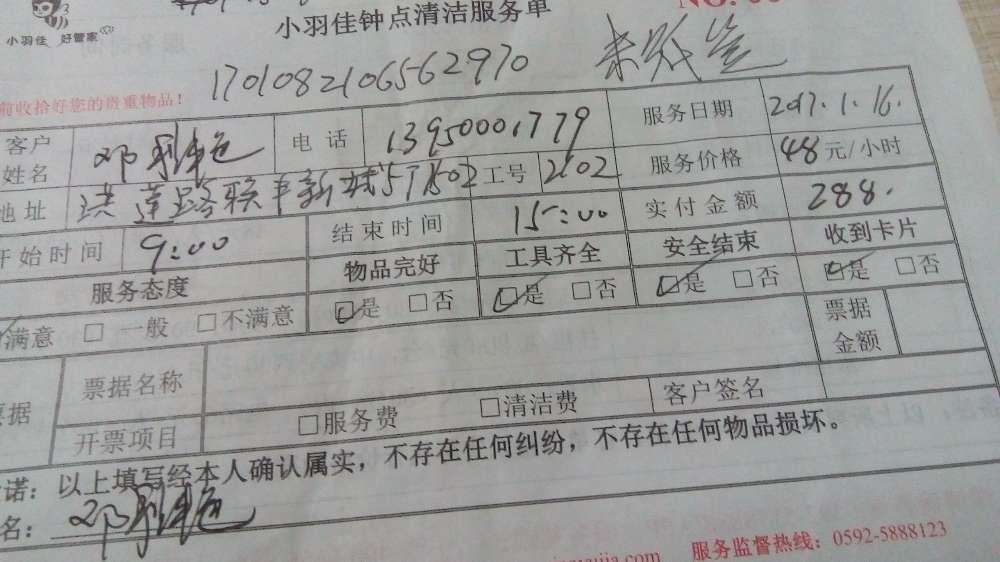 小羽佳钟点清洁服务单
NO.
小羽佳 好管家
1701082106562970
前收拾好您的贵重物品！
客户姓名 邓 电话 13950001779 服务日期 2017.1.16.
地址 洪莲路联丰新城 工号 2102 服务价格 48元/小时
开始时间 9:00 结束时间 15:00 实付金额 288.
服务态度 物品完好 工具齐全 安全结束 收到卡片
满意 □ 一般 □不满意 □是 □否 □是 □否 □是 □否 □是 □否
票据 票据名称 票据金额
开票项目 □服务费 □清洁费 客户签名
诺：以上填写经本人确认属实，不存在任何纠纷，不存在任何物品损坏。
名： 邓
.com 服务监督热线：0592-5888123